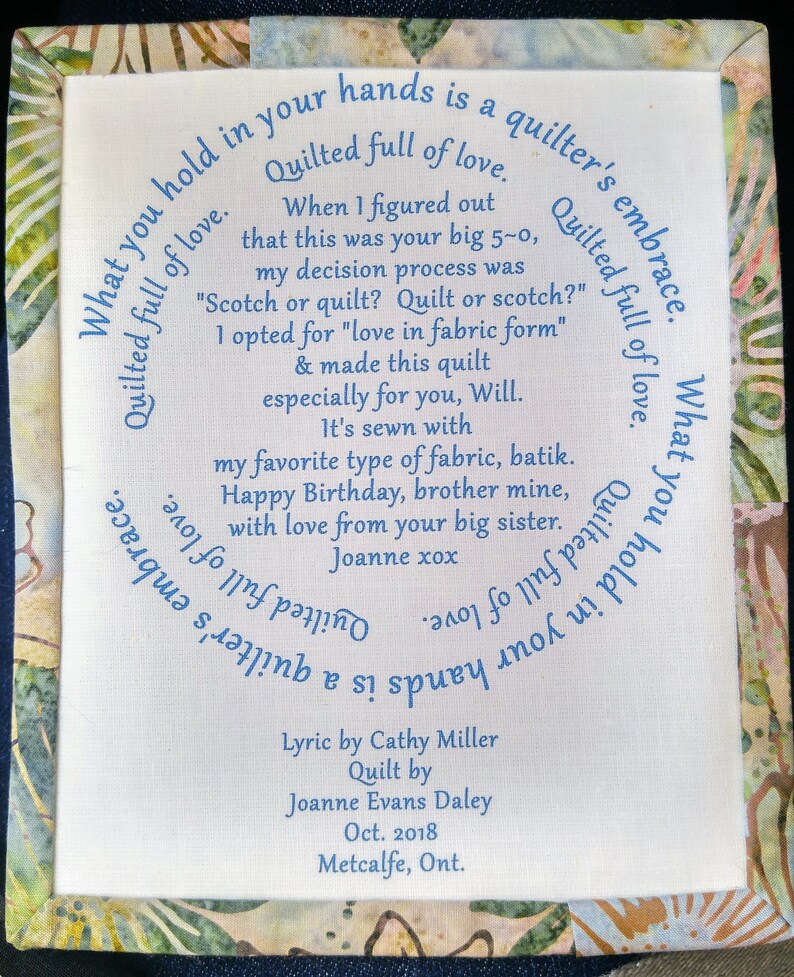 What you hold in your hands is a quilter's embrace.
What you hold in your hands is a quilter's embrace.
Quilted full of love.
Quilted full of love.
Quilted full of love.
Quilted full of love.
Quilted full of love.
When I figured out
that this was your big 5~0,
my decision process was
"Scotch or quilt? Quilt or scotch?"
I opted for "love in fabric form"
& made this quilt
especially for you, Will.
It's sewn with
my favorite type of fabric, batik.
Happy Birthday, brother mine,
with love from your big sister.
Joanne xox
Lyric by Cathy Miller
Quilt by
Joanne Evans Daley
Oct. 2018
Metcalfe, Ont.